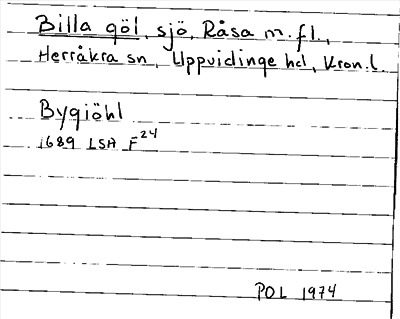 Billa göl, sjö, Råsa m.fl.,
Herråkra sn, Uppvidinge hd, Kron.l.
Bygiöhl
1689 LSA F24
POL 1974